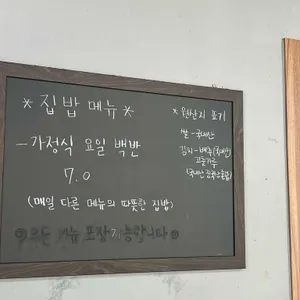 *집밥 메뉴*
-가정식 요일 백반
7.0
(매일 다른 메뉴의 따뜻한 집밥)
모든 메뉴 포장가능합니다
*원산지 표기
쌀-국내산
김치-배추(국내산)
고춧가루